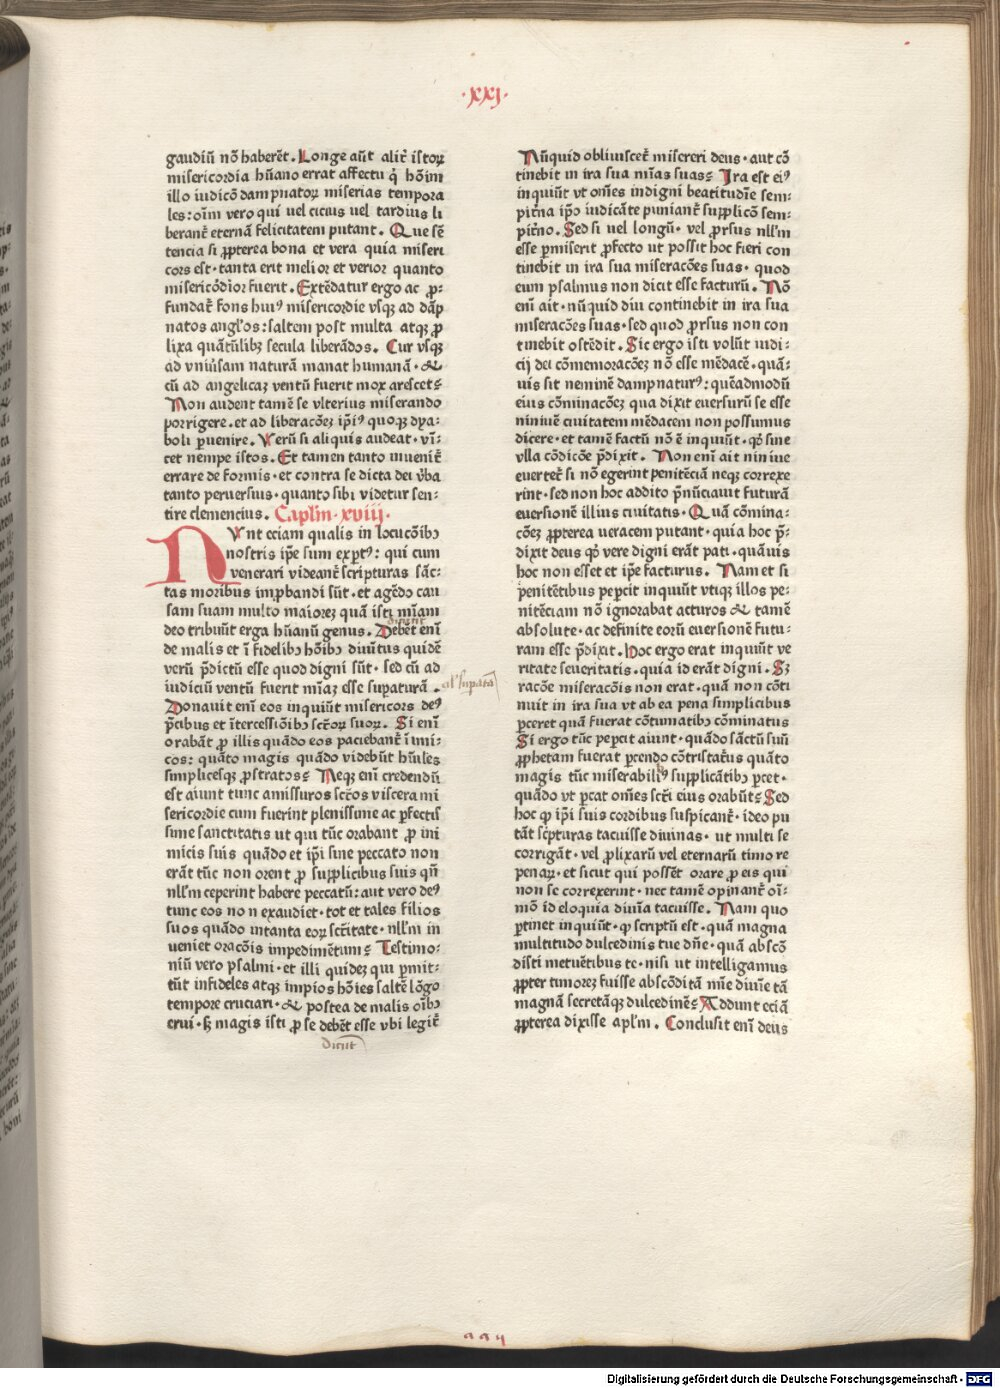 ·xxj·
gaudiū nō haberēt. Longe aūt alit̄ istoꝝ
misericordia hūano errat affectu q̄ hōim
illo iudicō dampnatoꝝ miserias tempora
les: oīm vero qui uel cicius uel tardius li
berant̄ eternā felicitatem putant. Que sē
tencia si ꝓpterea bona et vera quia miseri
cors est· tanta erit melior et verior quanto
misericōdior fuerit. Extēdatur ergo ac ꝓ-
fundat̄ fons huiꝰ misericordie vsqꝫ ad dāp
natos angl̓os: saltem post multa atqꝫ ꝓ
lixa quātūlibꝫ secula liberādos. Cur vsqꝫ
ad vniūsam naturā manat humanā· &
cū ad angelicaꝫ ventū fuerit mox arescet?
Non audent tamē se vlterius miserando
porrigere· et ad liberacōeꝫ ip̄iꝰ quoqꝫ dya-
boli ꝑuenire. Verū si aliquis audeat· vī-
cet nempe istos. Et tamen tanto inuenit̄
errare deformis· et contra se dicta dei v̄ba
tanto peruersius· quanto sibi videtur sen-
tire clemencius. Capl̄m·xviij·
NVnt eciam qualis in locucōibꝫ
nostris ip̄e sum exꝑtꝰ: qui cum
venerari videant̄ scripturas sāc-
tas moribus imꝓbandi sūt· et agēdo cau
sam suam multo maioreꝫ quā isti m̄iam
deo tribuūt erga hūanū genus. Debēt enī
de malis et ī fidelibꝫ hōibꝫ diuītus quidē
verū p̄dictū esse quod digni sūt· sed cū ad
iudiciū ventū fuerit mīaꝫ esse suꝑaturā.
al' suꝑatā
Donauit enī eos inquiūt misericors deꝰ
p̄cibus et ītercessiōibꝫ sctoꝝ suoꝝ. Si enī
orabāt ꝓ illis quādo eos paciebant̄ īimi-
cos: quāto magis quādo videbūt hūiles
simplicesqꝫ ꝓstratos? Neqꝫ enī credendū
est aiunt tunc amissuros sctōs viscera mi
sericordie cum fuerint plenissime ac ꝑfectis
sime sanctitatis ut qui tūc orabant ꝓ ini
micis suis quādo et ip̄i sine peccato non
erāt tūc non orent ꝓ supplicibus suis qn̄
nll̄m ceperint habere peccatū: aut vero deꝰ
tunc eos non exaudiet· tot et tales filios
suos quādo in tanta eoꝝ sctītate· nll̄m in
veniet oracōis impedimētum? Testimo-
niū vero psalmi· et illi quideꝫ qui ꝑmit-
tūt infideles atqꝫ impios hōies saltē lōgo
tempore cruciari· & postea de malis oībꝫ
erui· sꝫ magis isti ꝓ se debēt esse vbi legit̄
dicūt
Nūquid obliuiscet̄ misereri deus· aut cō
tinebit in ira sua mīas suas? Ira est eiꝰ
inquiūt vt omēs indigni beatitudīe sem-
pit̄na ip̄o iudicāte puniant̄ supplicō sem-
pit̄no. Sed si uel longū· vel ꝓrsus nll̄m
esse ꝑmiserit ꝓfecto ut possit hoc fieri con
tinebit in ira sua miseracōes suas· quod
eum psalmus non dicit esse facturū. Nō
enī ait· nūquid diu continebit in ira sua
miseracōes suas· sed quod ꝓrsus non con
tinebit ostēdit. Sic ergo isti volūt iudi-
cij dei cōmemoracōeꝫ nō esse mēdacē· quā-
uis sit neminē dampnaturꝰ: quēadmodū
eius cōminacōeꝫ qua dixit euersurū se esse
niniuē ciuitatem mēdacem non possumus
dicere· et tamē factū nō ē inquiūt· qd̄ sine
vlla cōdicōe p̄dixit. Non enī ait niniue
euertet̄ si nō egerint penitēciā neqꝫ correxe
rint· sed non hoc addito p̄nūciauit futurā
euersionē illius ciuitatis. Quā cōmina-
cōeꝫ ꝓpterea ueracem putant· quia hoc p̄-
dixit deus qd̄ vere digni erāt pati· quāuis
hoc non esset et ip̄e facturus. Nam et si
penitētibus peꝑcit inquiūt vtiqꝫ illos pe-
nitēciam nō ignorabat acturos & tamē
absolute· ac definite eorū euersionē futu-
ram esse p̄dixit. Hoc ergo erat inquiūt ve
ritate seueritatis· quia id erāt digni. Sꝫ
racōe miseracōis non erat· quā non cōti
nuit in ira sua vt ab ea pena simplicibus
ꝑceret quā fuerat cōtumatibꝫ cōminatus
Si ergo tūc peꝑcit aiunt· quādo sāctū suū
ꝓphetam fuerat ꝑcendo cōtristatꝰus quāto
magis tūc miserabiliꝰ supplicātibꝫ ꝑcet·
quādo vt ꝑcat omēs sctī eius orabūt? Sed
hoc qd̄ ip̄i suis cordibus suspicant̄· ideo pu
tāt sc̄pturas tacuisse diuinas· ut multi se
corrigāt· vel ꝓlixarū vel eternarū timore
penaꝝ· et sicut qui possēt orare ꝓ eis qui
non se correxerint· nec tamē opinant̄ oī-
mō id eloquia diuīa tacuisse. Nam quo
ꝑtinet inquiūt· qd̄ scriptū est· quā magna
multitudo dulcedinis tue dn̄e· quā abscō
disti metuētibus te· nisi ut intelligamus
ꝓpter timoreꝫ fuisse abscōditā mīe diuīe tā
magnā secretāqꝫ dulcedinē? Addunt eciā
ꝓpterea dixisse apl̄m. Conclusit enī deus
Digitalisierung gefördert durch die Deutsche Forschungsgemeinschaft - DFG